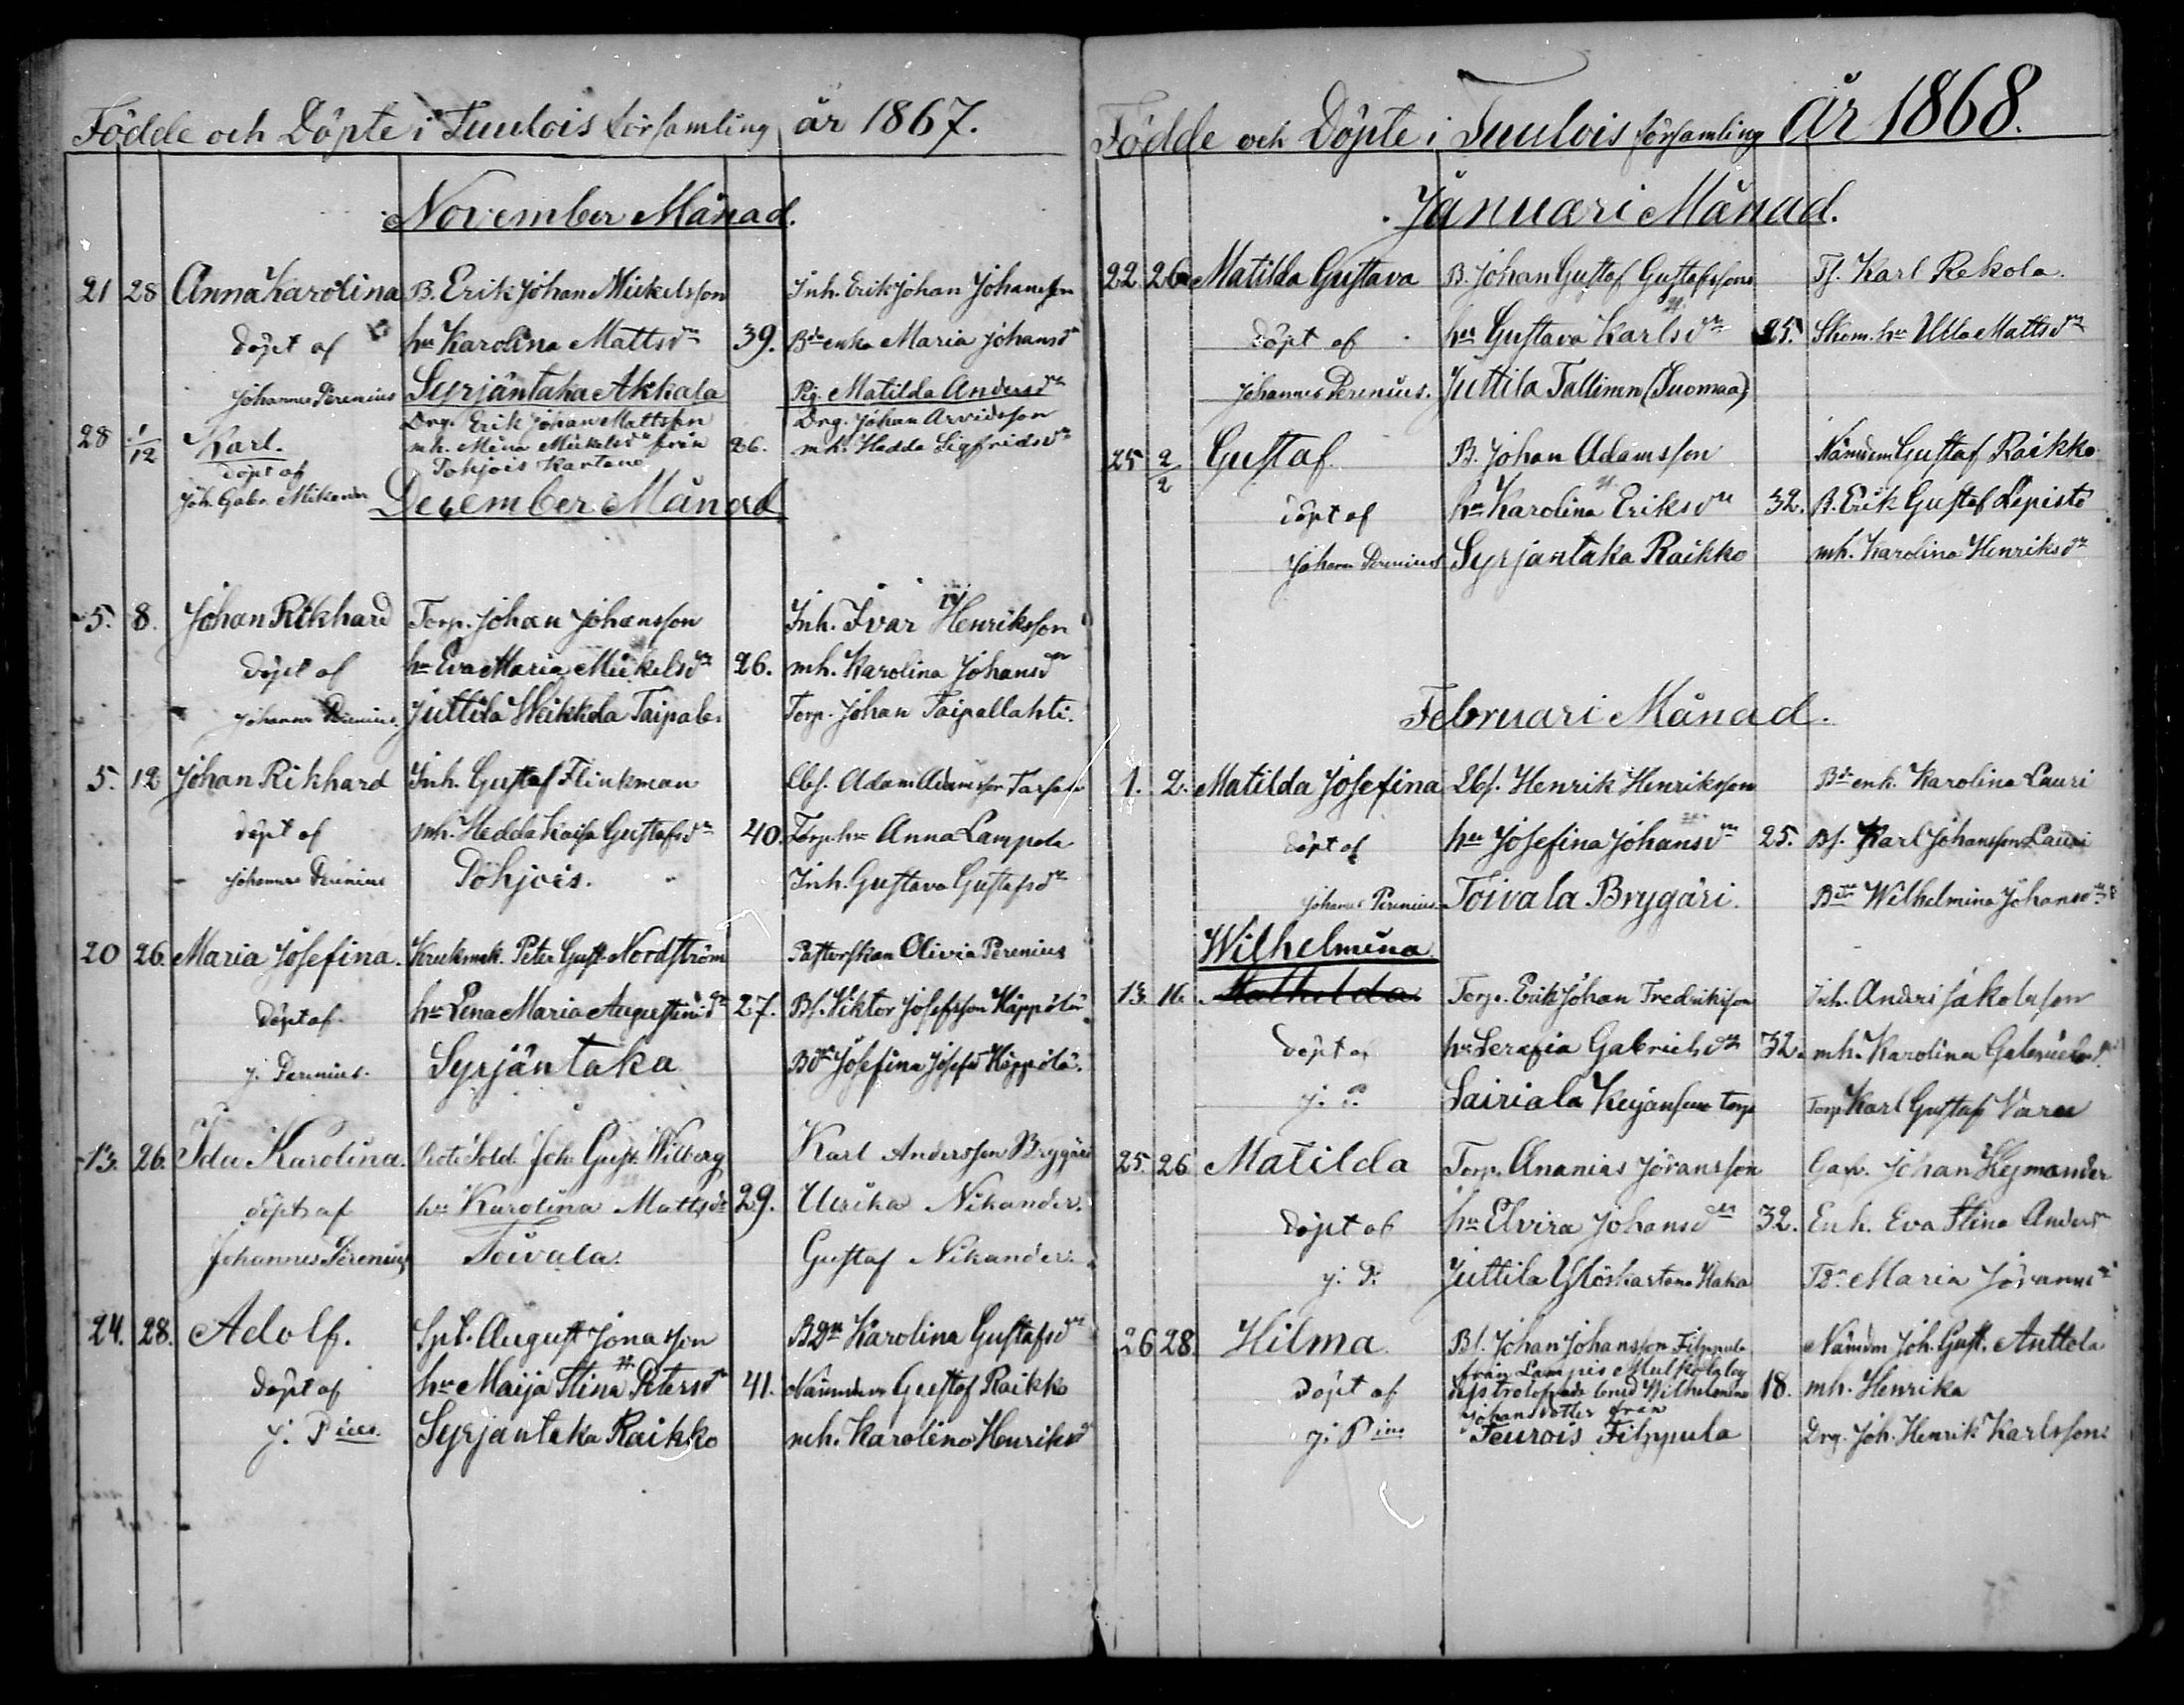 Födde och Döpte i Tuulois församling år 1867.
November Månad.
21 28 Anna Karolina B. Erik Johan Mickelsson Inh. Erik Johan Johansson
döpt af hu Karolina Mattsdr 39. Bde enka Maria Johansdr
Johannes Perenius Syrjäntaka Akkala Pig. Matilda Andersdr
28 1/12 Karl. Drg. Erik Johan Mattsson Drg. Johan Arvidsson
mh. Mina Mickelsdr från 26. mh. Hedda Sigfridsdr
döpt af Pohjois Kartano
Joh. Gabr.
December Månad
5. 8. Johan Rikhard Torp. Johan Johansson Inh. Ivar Henriksson
döpt af hu Eva Maria Mickelsdr 26. mh. Karolina Johansdr
Johannes Perenius. Juttila Weikkola Taipale Torp. Johan Taipallahti.
5. 12 Johan Rikhard Inh. Gustaf Flinkman Adam Adamsson
döpt af mh. Hedda Kaisa Gustafsdr 40. Torp. hu Anna Lampola
Johannes Perenius Pohjois. Inh. Gustava Gustafsdr
20 26. Maria Josefina. Peter Gust. Nordström Pastorskan Olivia Perenius
döpt af hu Lena Maria 27. Bs. Viktor Josefsson Käppölä
J. Perenius. Syrjäntaka Bdr Josefina Josefsdr Käppölä.
13. 26. Ida Karolina. Rote Sold. Joh. Gust. Wilberg Karl Andersson Brygäri
döpt af hu Karolina Mattsdr 29. Ulrika Nikander.
Johannes Perenius Toivala. Gustaf Nikander.
24. 28. Adolf. Spl. August Jonasson Bdr Karolina Gustafsdr
döpt af hu Maija Stina Petersdr 41. Nämndem Gustaf Raikko
J. P ius. Syrjäntaka Raikko mh. Karolina Henriksdr
Födde och Döpte i Tuulois församling År 1868.
Januari Månad.
22 26 Matilda Gustava B. Johan Gustaf Gustafsson Tj. Karl Rekola.
döpt af hu Gustava Karlsdr 25. Skom. hu Ulla Mattsdr
Johannes Perenius. Juttila Tallimn (Suomaa)
25 2/2 Gustaf. B. Johan Adamsson Nämndem Gustaf Raikko
döpt af hu Karolina Eriksdr 32. B. Erik Gustaf Lepistö
Johann Perenius Syrjäntaka Raikko mh. Karolina Henriksdr
Februari Månad.
1. 2. Matilda Josefina Lbs. Henrik Henriksson Bde enk. Karolina Lauri
döpt af hu Josefina Johansdr 25. Bs. Karl Johansson Lauri
Johannes Perenius Toivala Brygäri. Bdr Wilhelmina Johansdr
Wilhelmina
13. 16. Mathilda Torp. Erik Johan Fredriksson Inh. Anders Jakobsson
döpt af hu Serafia Gabrielsdr 32. mh. Karolina Gabrielsdr
J. P. Sairiala torp Torp Karl Gustaf Vara
25. 26 Matilda Torp. Ananias Jöransson Johan
döpt af hu Elvira Johansdr 32. Enk. Eva Stina Andersdr
J. P. Juttila Yliskartano Haka Tdr Maria Jöransdr
26 28. Hilma. Bs. Johan Johansson Filppula Nämdm Joh. Gust. Anttola
från Lampis Mulkola
döpt af trolofvade brud Wilhelmina 18. mh. Henrika
Johansdotter från
J. P ius Teurois Filppula Drg. Joh. Henrik Karlsson